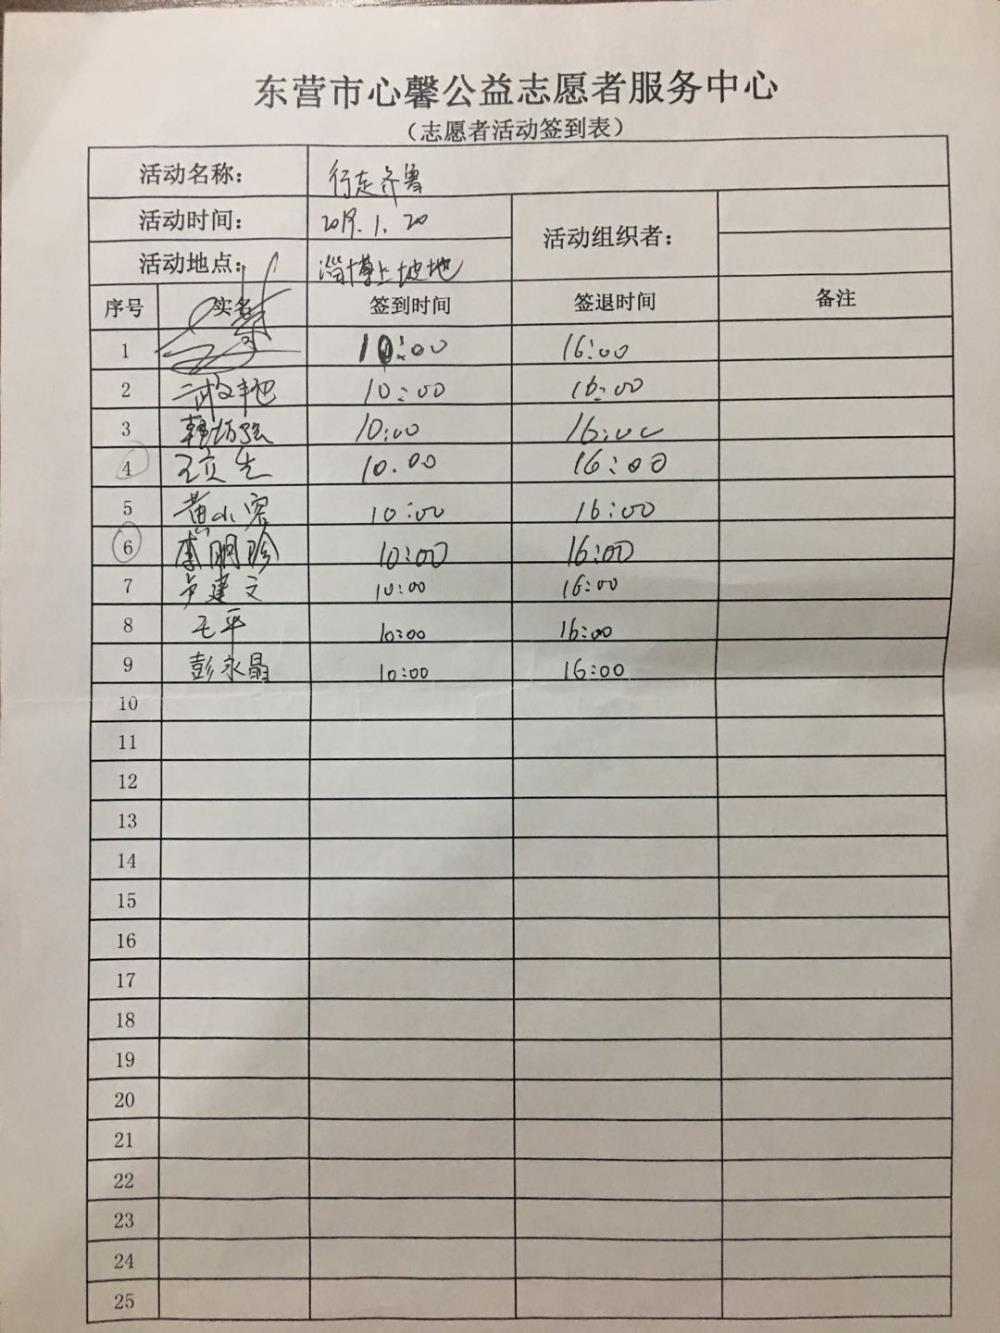 东营市心馨公益志愿者服务中心
（志愿者活动签到表）
活动名称： 行走齐鲁
活动时间： 2019.1.20 活动组织者：
活动地点： 淄博上坡地
序号 实名 签到时间 签退时间 备注
1 10:00 16:00
2 10:00 16:00
3 10:00 16:00
4 10:00 16:00
5 黄小容 10:00 16:00
6 李明珍 10:00 16:00
7 卢建文 10:00 16:00
8 毛平 10:00 16:00
9 彭永晶 10:00 16:00
10
11
12
13
14
15
16
17
18
19
20
21
22
23
24
25